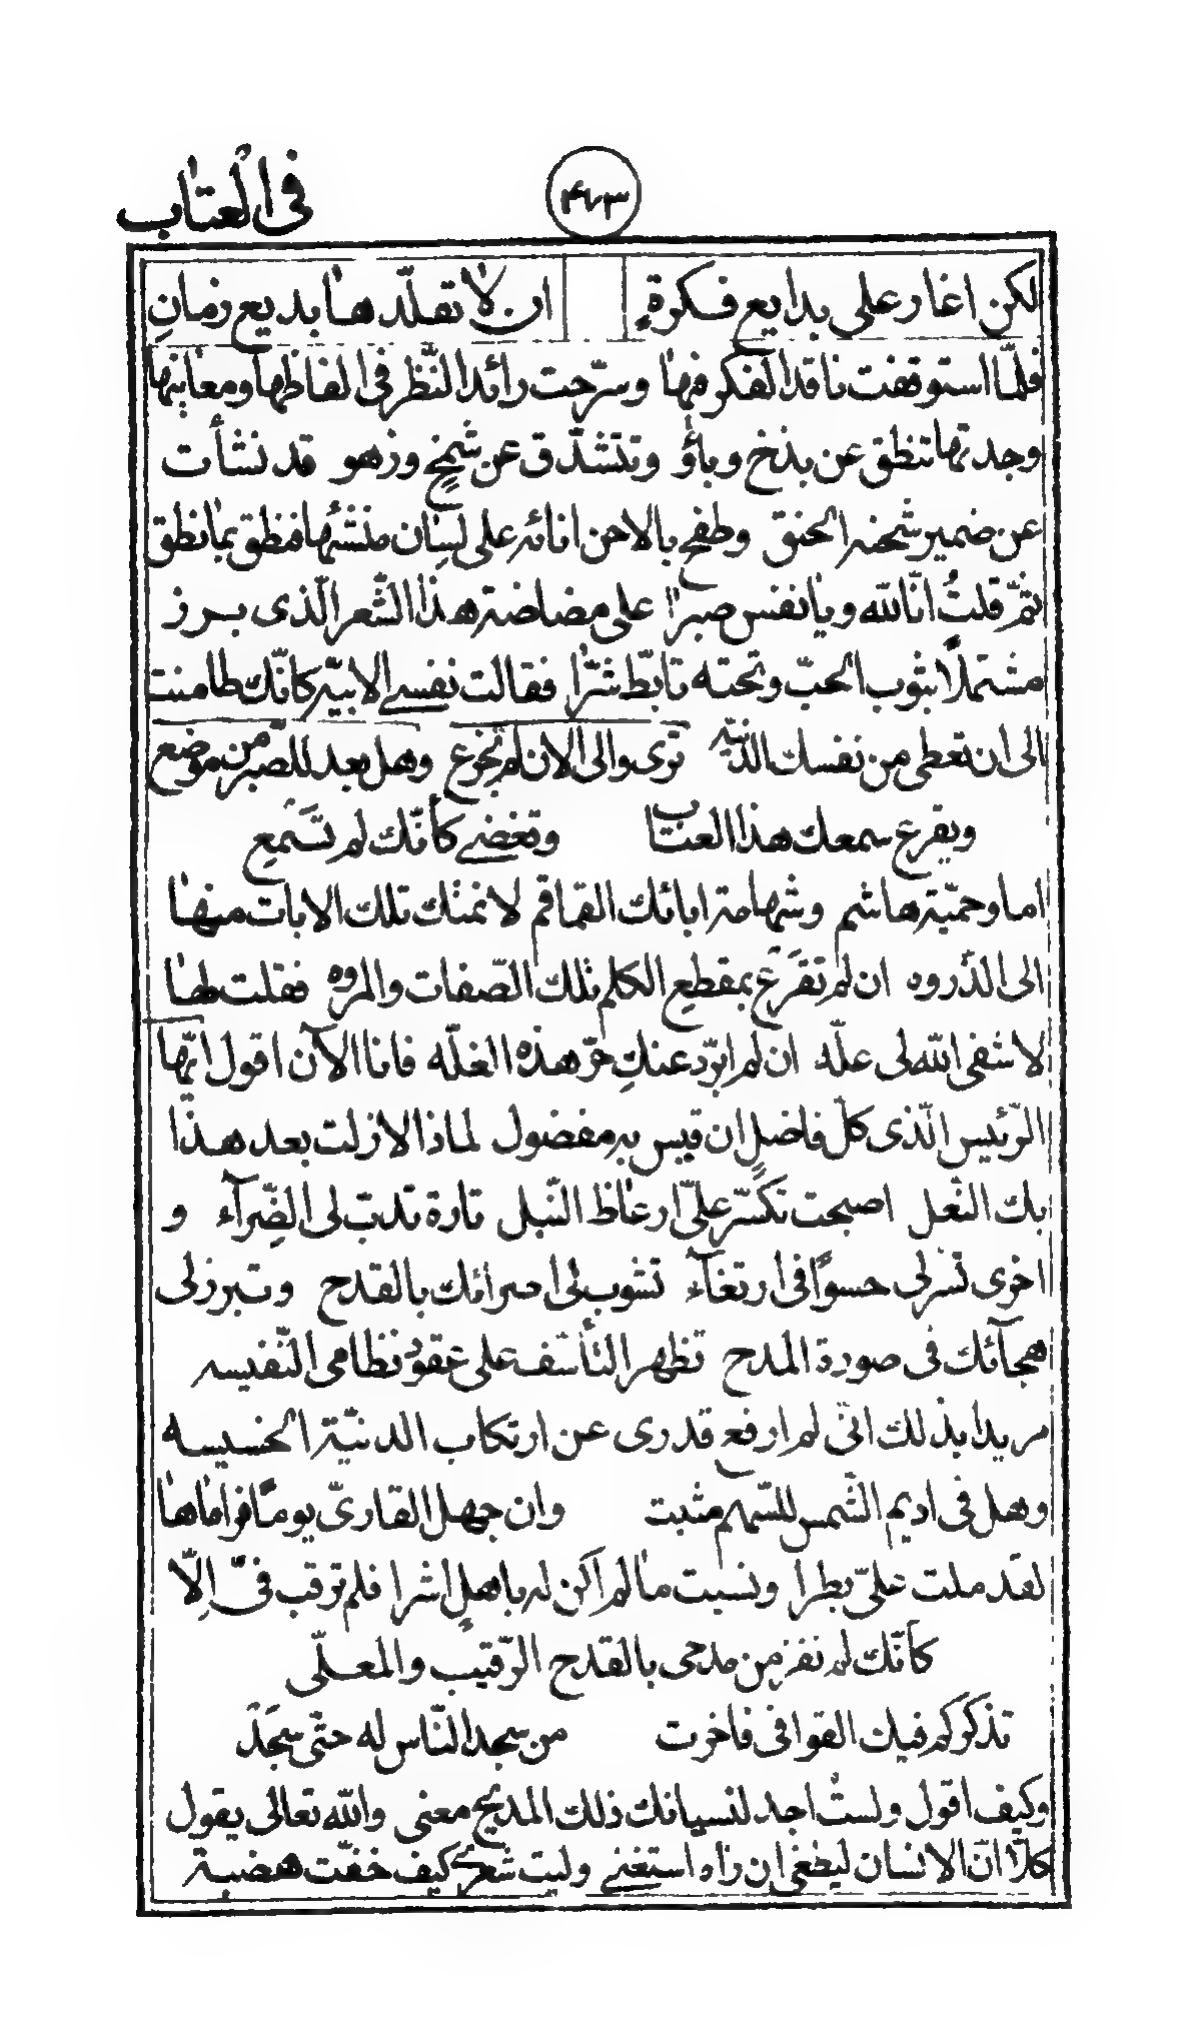 في العتاب
٤٧٣
لكن اغار على بدايع فكرة ان لا تقلّد ها بديع زمانِ
فلمّا استوقفت ناقد الفكر فيها وسرّحت رائد النّظر فى الفاظها ومعانيها
وجدتها تنطق عن بذخ وبأوٍ وتتشدّق عن شمخٍ وزهو قد نشأت
عن ضمير شحنه الحنق وطفح بالاحن انائه على لسان منشئها فنطق بما نطق
ثمّ قلتُ انّا لله ويا نفس صبرًا على مضاضة هذا الشّعر الّذى برز
مشتملًا بثوب الحبّ وتحته تابّط شرّا فقالت نفسى الابيّه كانّك طامنت
الى ان تعطى من نفسك الدّنيّه ترى والى الان لم تجزع وهل بعد للصّبر من موضع
ويقرع سمعك هذا العتاب وتغضى كأنّك لم تسمع
اما وحميّة هاشم وشهامة ابائك القماقم لا نمتك تلك الابات منها
الى الذّروه ان لم تقرع بمقطع الكلم تلك الصّفات والمروه فقلت لها
لا شفى الله لى علّه ان لم ابرّد عنكِ حرّ هذه الغلّه فانا الآن اقول ايّها
الرّئيس الّذى كلّ فاضلٍ ان قيس به مفضول لماذا لا زلت بعد هذا
بك النّعل اصبحت تكسّر علىّ ارعاظ النّبل تارة تدبّ لى الضّرآء و
اخرى تسرّ لى حسوًا فى ارتغآء تشوب لى اصرائك بالقدح وتبرز لى
هجآئك فى صورة المدح تظهر التأسّف على عقود نظامى النّفيسه
مريدا بذلك انّى لم ارفع قدرى عن ارتكاب الدنيّة الخسيسه
وهل فى اديم الشّمس للسّهم مثبت وان جهل القارىّ يومًا فراماها
لقد ملت علىّ بطرا ونسبت ما لم اكن له باهلٍ اشرا فلم ترقب فىّ اِلّا
كأنّك لم تفز من مدحى بالقدح الرّقيب والمعلّى
تذكر كم فيك القوافى فاخرت من سجد النّاس له حتّى سجد
وكيف اقول ولستُ اجد لنسيانك ذلك المديح معنى والله تعالى يقول
كلّا انّ الانسان ليطغى ان راه استغنى وليت شعرى كيف خفّت هضبة